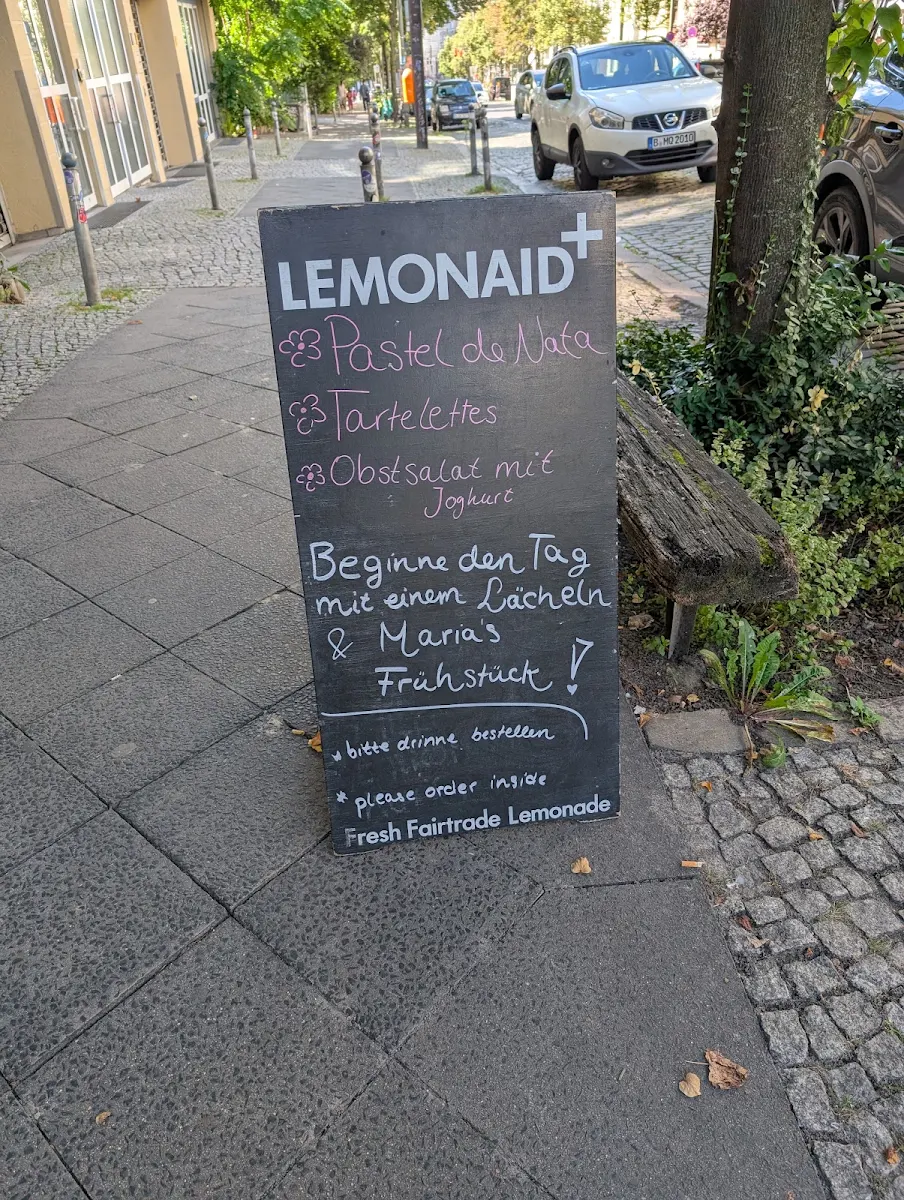 LEMONAID+
Pastel de Nata
Tartelettes
Obstsalat mit
Joghurt
Beginne den Tag
mit einem Lächeln
& Maria's
Frühstück!
bitte drinne bestellen
* please order inside
Fresh Fairtrade Lemonade
B MQ 2010